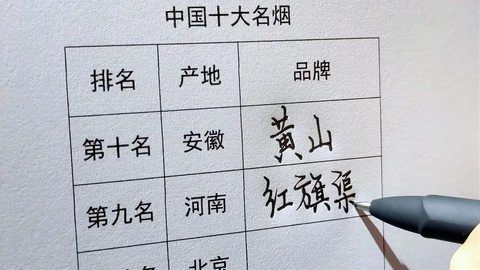 中国十大名烟
排名 产地 品牌
第十名 安徽 黄山
第九名 河南 红旗渠
名 北京